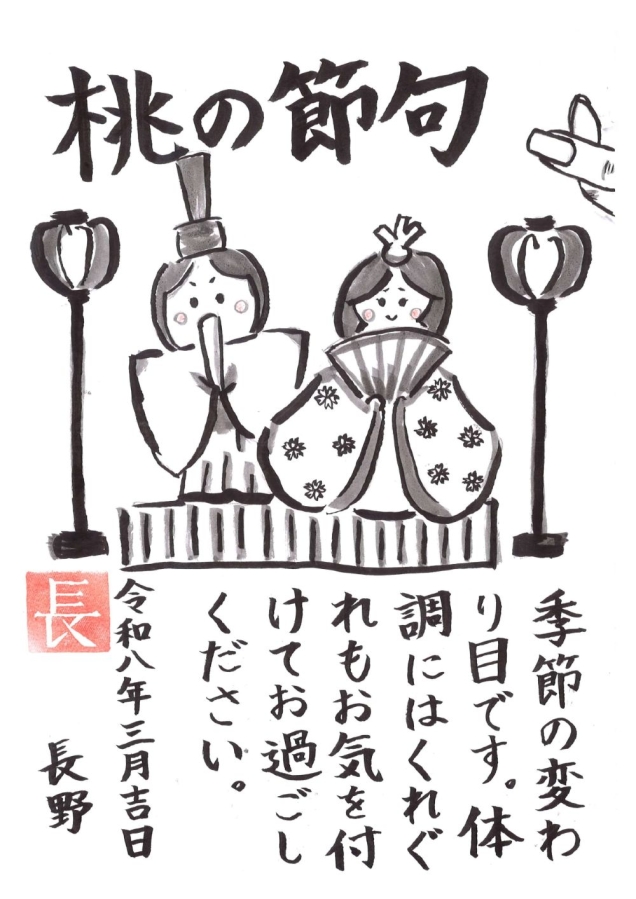 桃の節句
季節の変わ
り目です。体
調にはくれぐ
れもお気を付
けてお過ごし
ください。
令和八年三月吉日
長野
長